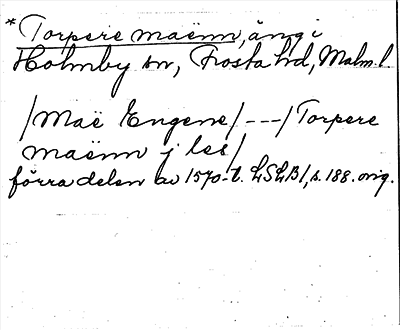 * Torpere maënn, äng i
Holmby sn, Frosta hd, Malm. l.
/Maë Engene/ ---/Torpere
maënn j les/
förra delen av 1570-t. LSLB1, s. 188. orig.